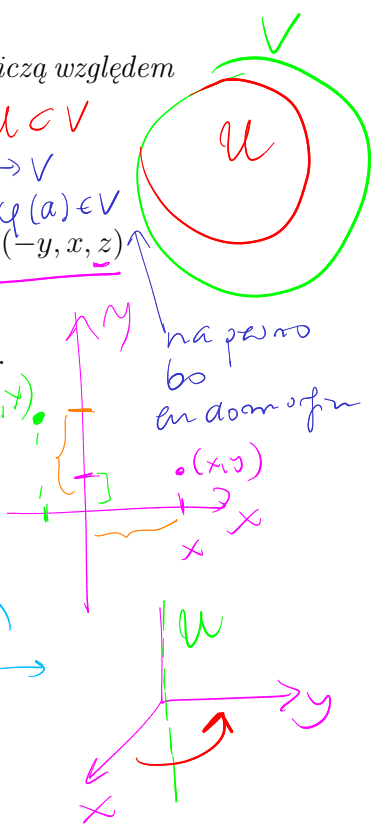 iczą względem
V
U ⊂ V
U
→ V
φ(a) ∈ V
(−y, x, z)
y
na pewno
bo
endomorfizm
(x,y)
x
x
U
y
x